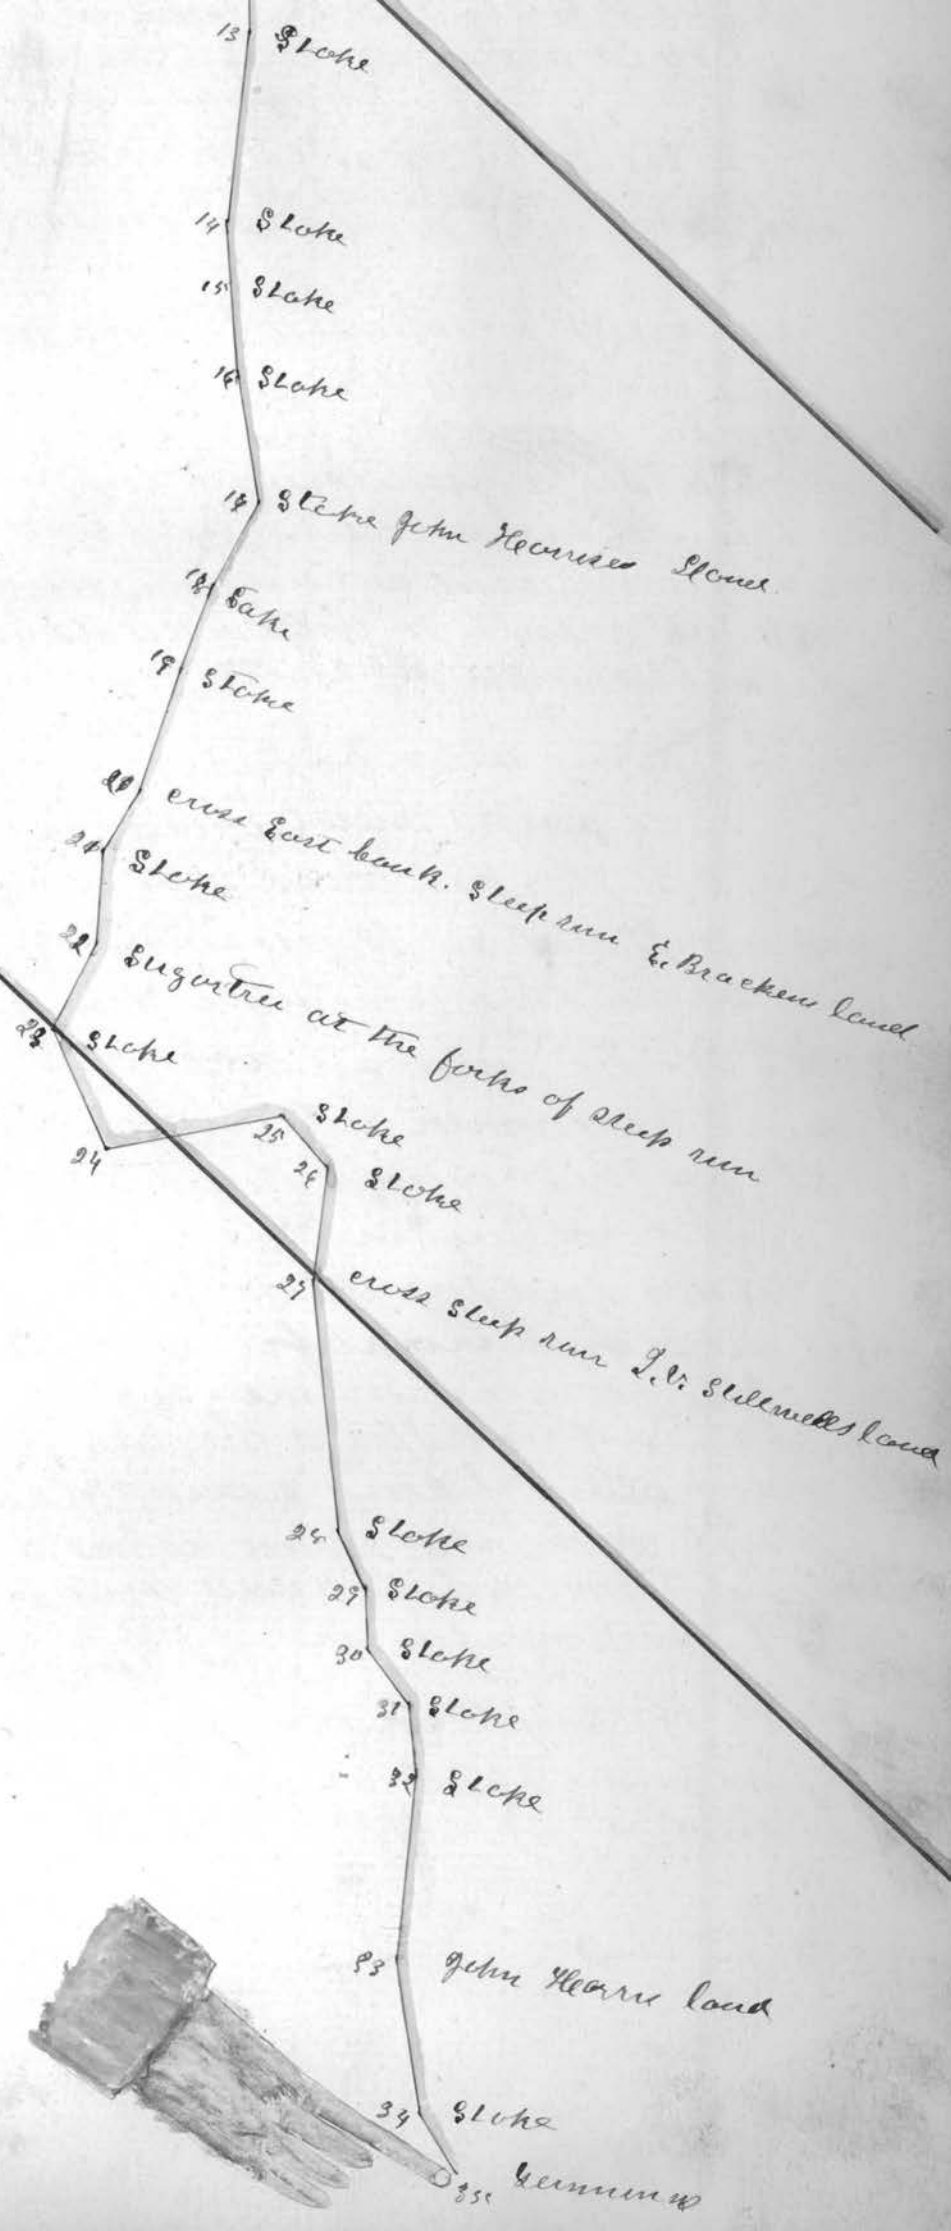 13 Stake
14 Stake
15 Stake
16 Stake
17 Stake John Harrises Land
18 Sake
19 Stake
20 cross East bank. Steep run E. Brackens land
21 Stake
22 Sugartree at the forks of steep run
23 Stake
24
25 Stake
26 Stake
27 cross Steep run J. V. Stillwells land
28 Stake
29 Stake
30 Stake
31 Stake
32 Stake
33 John Harris land
34 Stake
35